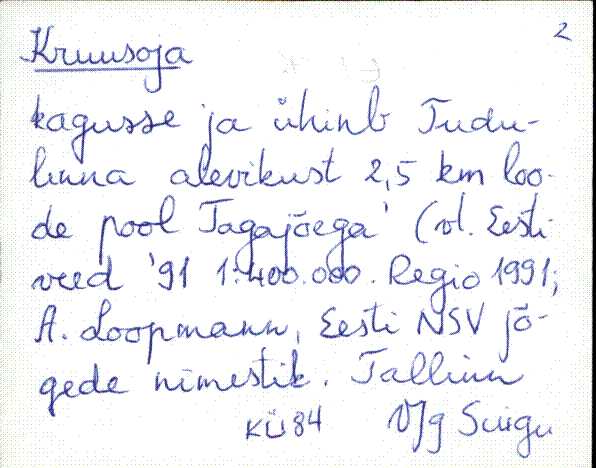 2
Kruusoja
kagusse ja ühinb Tudu-
linna alevikust 2,5 km loo-
de pool Tagajõega' (vt. Eesti
veed '91 1:400.000. Regio 1991;
A. Loopmann, Eesti NSV jõ-
gede nimestik. Tallinn
KÜ84 VJg